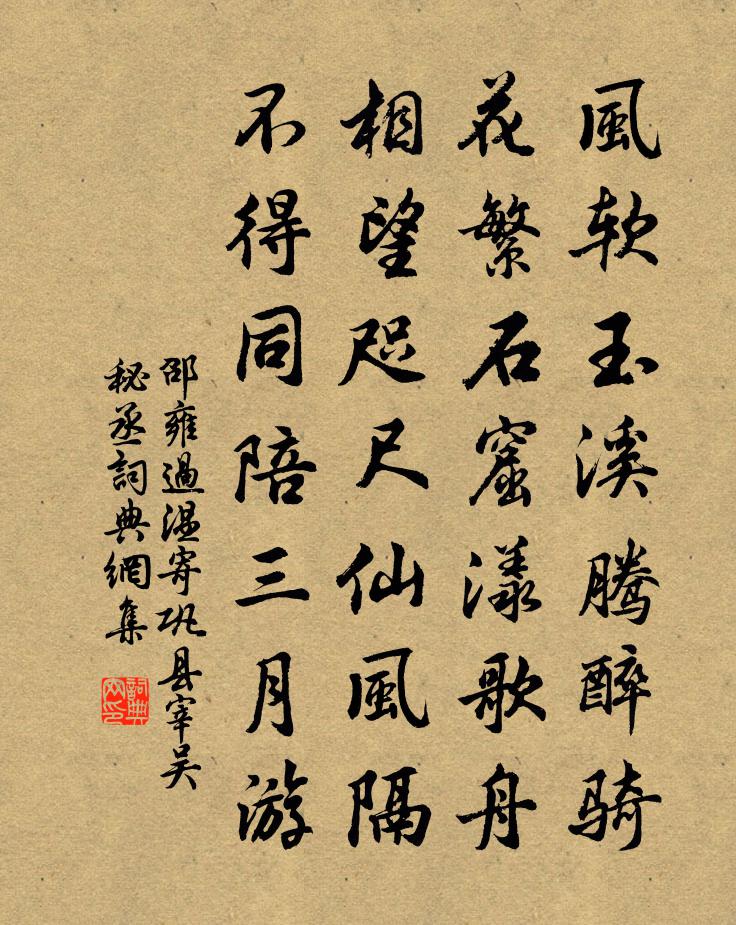 風软玉溪騰醉骑
花繁石窟漾歌舟
相望咫尺仙風隔
不得同陪三月游
邵雍過温寄巩县宰吴
秘丞詞典網集
詞典网印